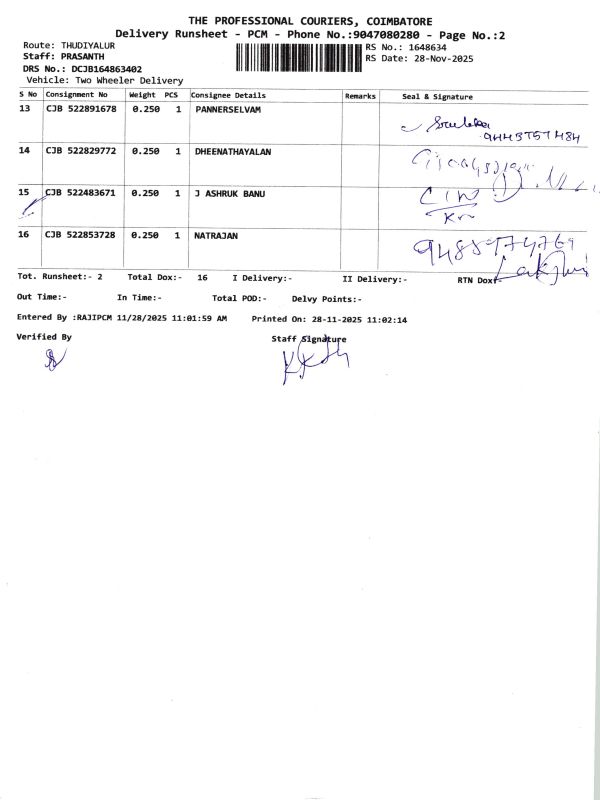 THE PROFESSIONAL COURIERS, COIMBATORE
Delivery Runsheet - PCM - Phone No.:9047080280 - Page No.:2
Route: THUDIYALUR
RS No.: 1648634
Staff: PRASANTH
RS Date: 28-Nov-2025
DRS No.: DCJB164863402
Vehicle: Two Wheeler Delivery
S No Consignment No Weight PCS Consignee Details Remarks Seal & Signature
13 CJB 522891678 0.250 1 PANNERSELVAM
14 CJB 522829772 0.250 1 DHEENATHAYALAN
15 CJB 522483671 0.250 1 J ASHRUK BANU
16 CJB 522853728 0.250 1 NATRAJAN
Tot. Runsheet:- 2 Total Dox:- 16 I Delivery:- II Delivery:- RTN Dox:-
Out Time:- In Time:- Total POD:- Delvy Points:-
Entered By :RAJIPCM 11/28/2025 11:01:59 AM Printed On: 28-11-2025 11:02:14
Verified By Staff Signature